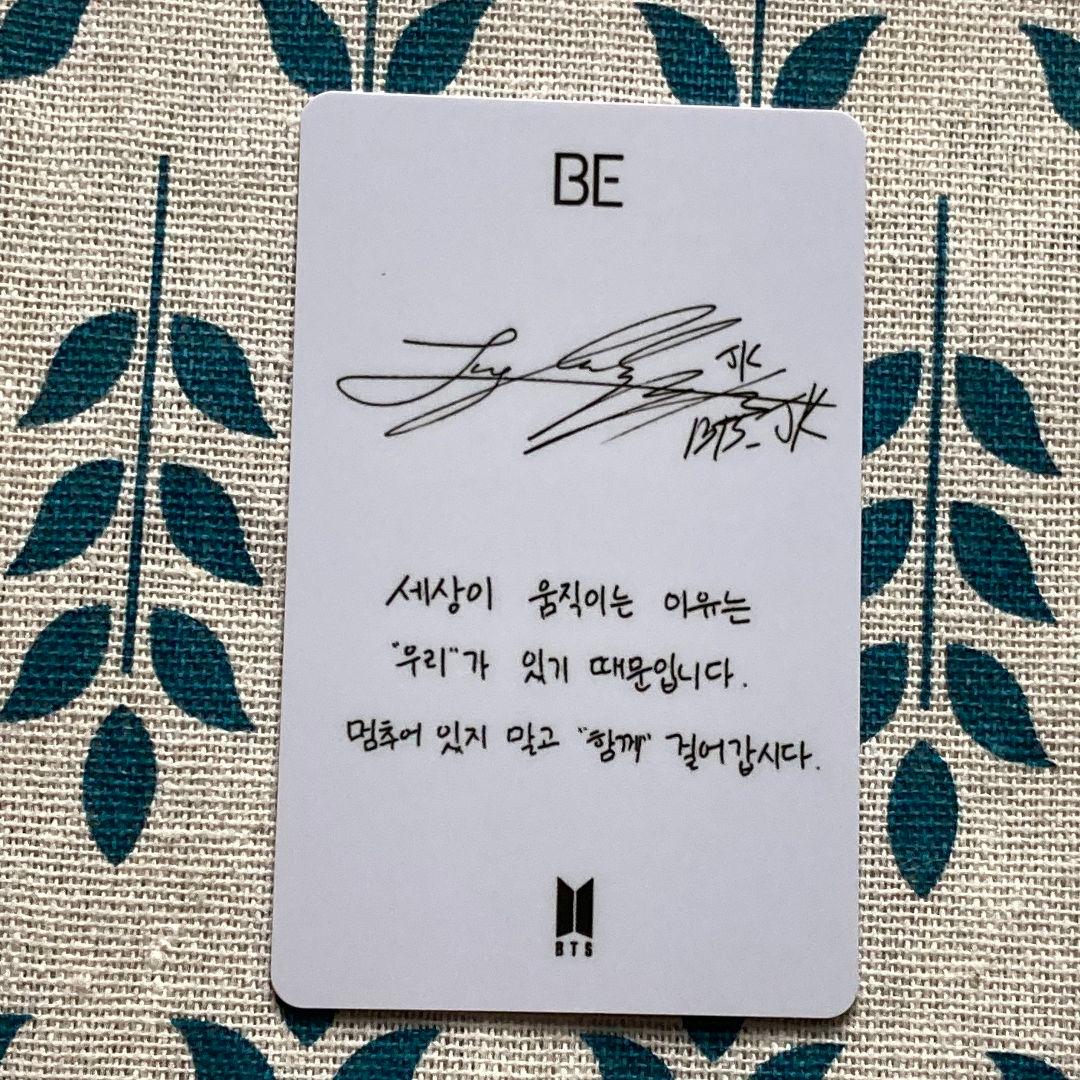 BE
JK
BTS_JK
세상이 움직이는 이유는
"우리"가 있기 때문입니다.
멈추어 있지 말고 "함께" 걸어갑시다.
BTS